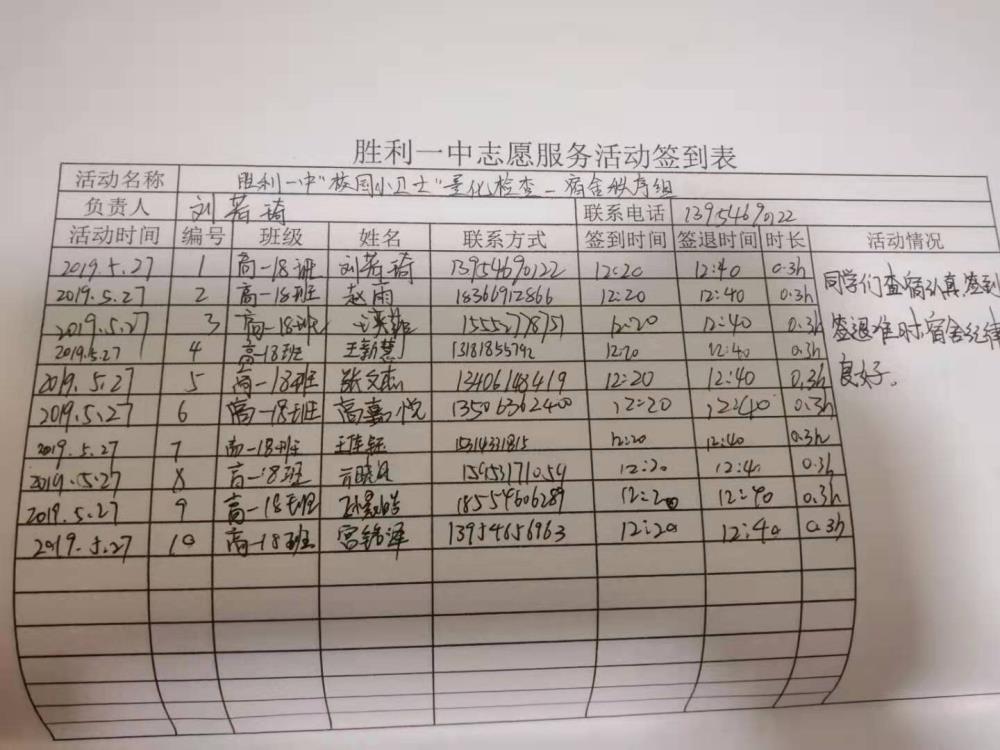 胜利一中志愿服务活动签到表
活动名称 胜利一中"校园小卫士"量化检查-宿舍秩序组
负责人 刘若琦 联系电话 13954690122
活动时间 编号 班级 姓名 联系方式 签到时间 签退时间 时长 活动情况
2019.5.27 1 高一18班 刘若琦 13954690122 12:20 12:40 0.3h
2019.5.27 2 高一18班 赵雨 18366912866 12:20 12:40 0.3h
2019.5.27 3 高一18班 15552778751 12:20 12:40 0.3h
2019.5.27 4 高一18班 王新慧 13181855792 12:20 12:40 0.3h
2019.5.27 5 高一18班 张文杰 13406148419 12:20 12:40 0.3h
2019.5.27 6 高一18班 高嘉悦 13506362400 12:20 12:40 0.3h
2019.5.27 7 高一18班 王佳钰 15314331815 12:20 12:40 0.3h
2019.5.27 8 高一18班 15953171059 12:20 12:4 0.3h
2019.5.27 9 高一18班 18554606289 12:20 12:40 0.3h
2019.5.27 10 高一18班 宫锦泽 13954656963 12:20 12:40 0.3h
同学们查宿认真,签到
签退准时,宿舍纪律
良好.